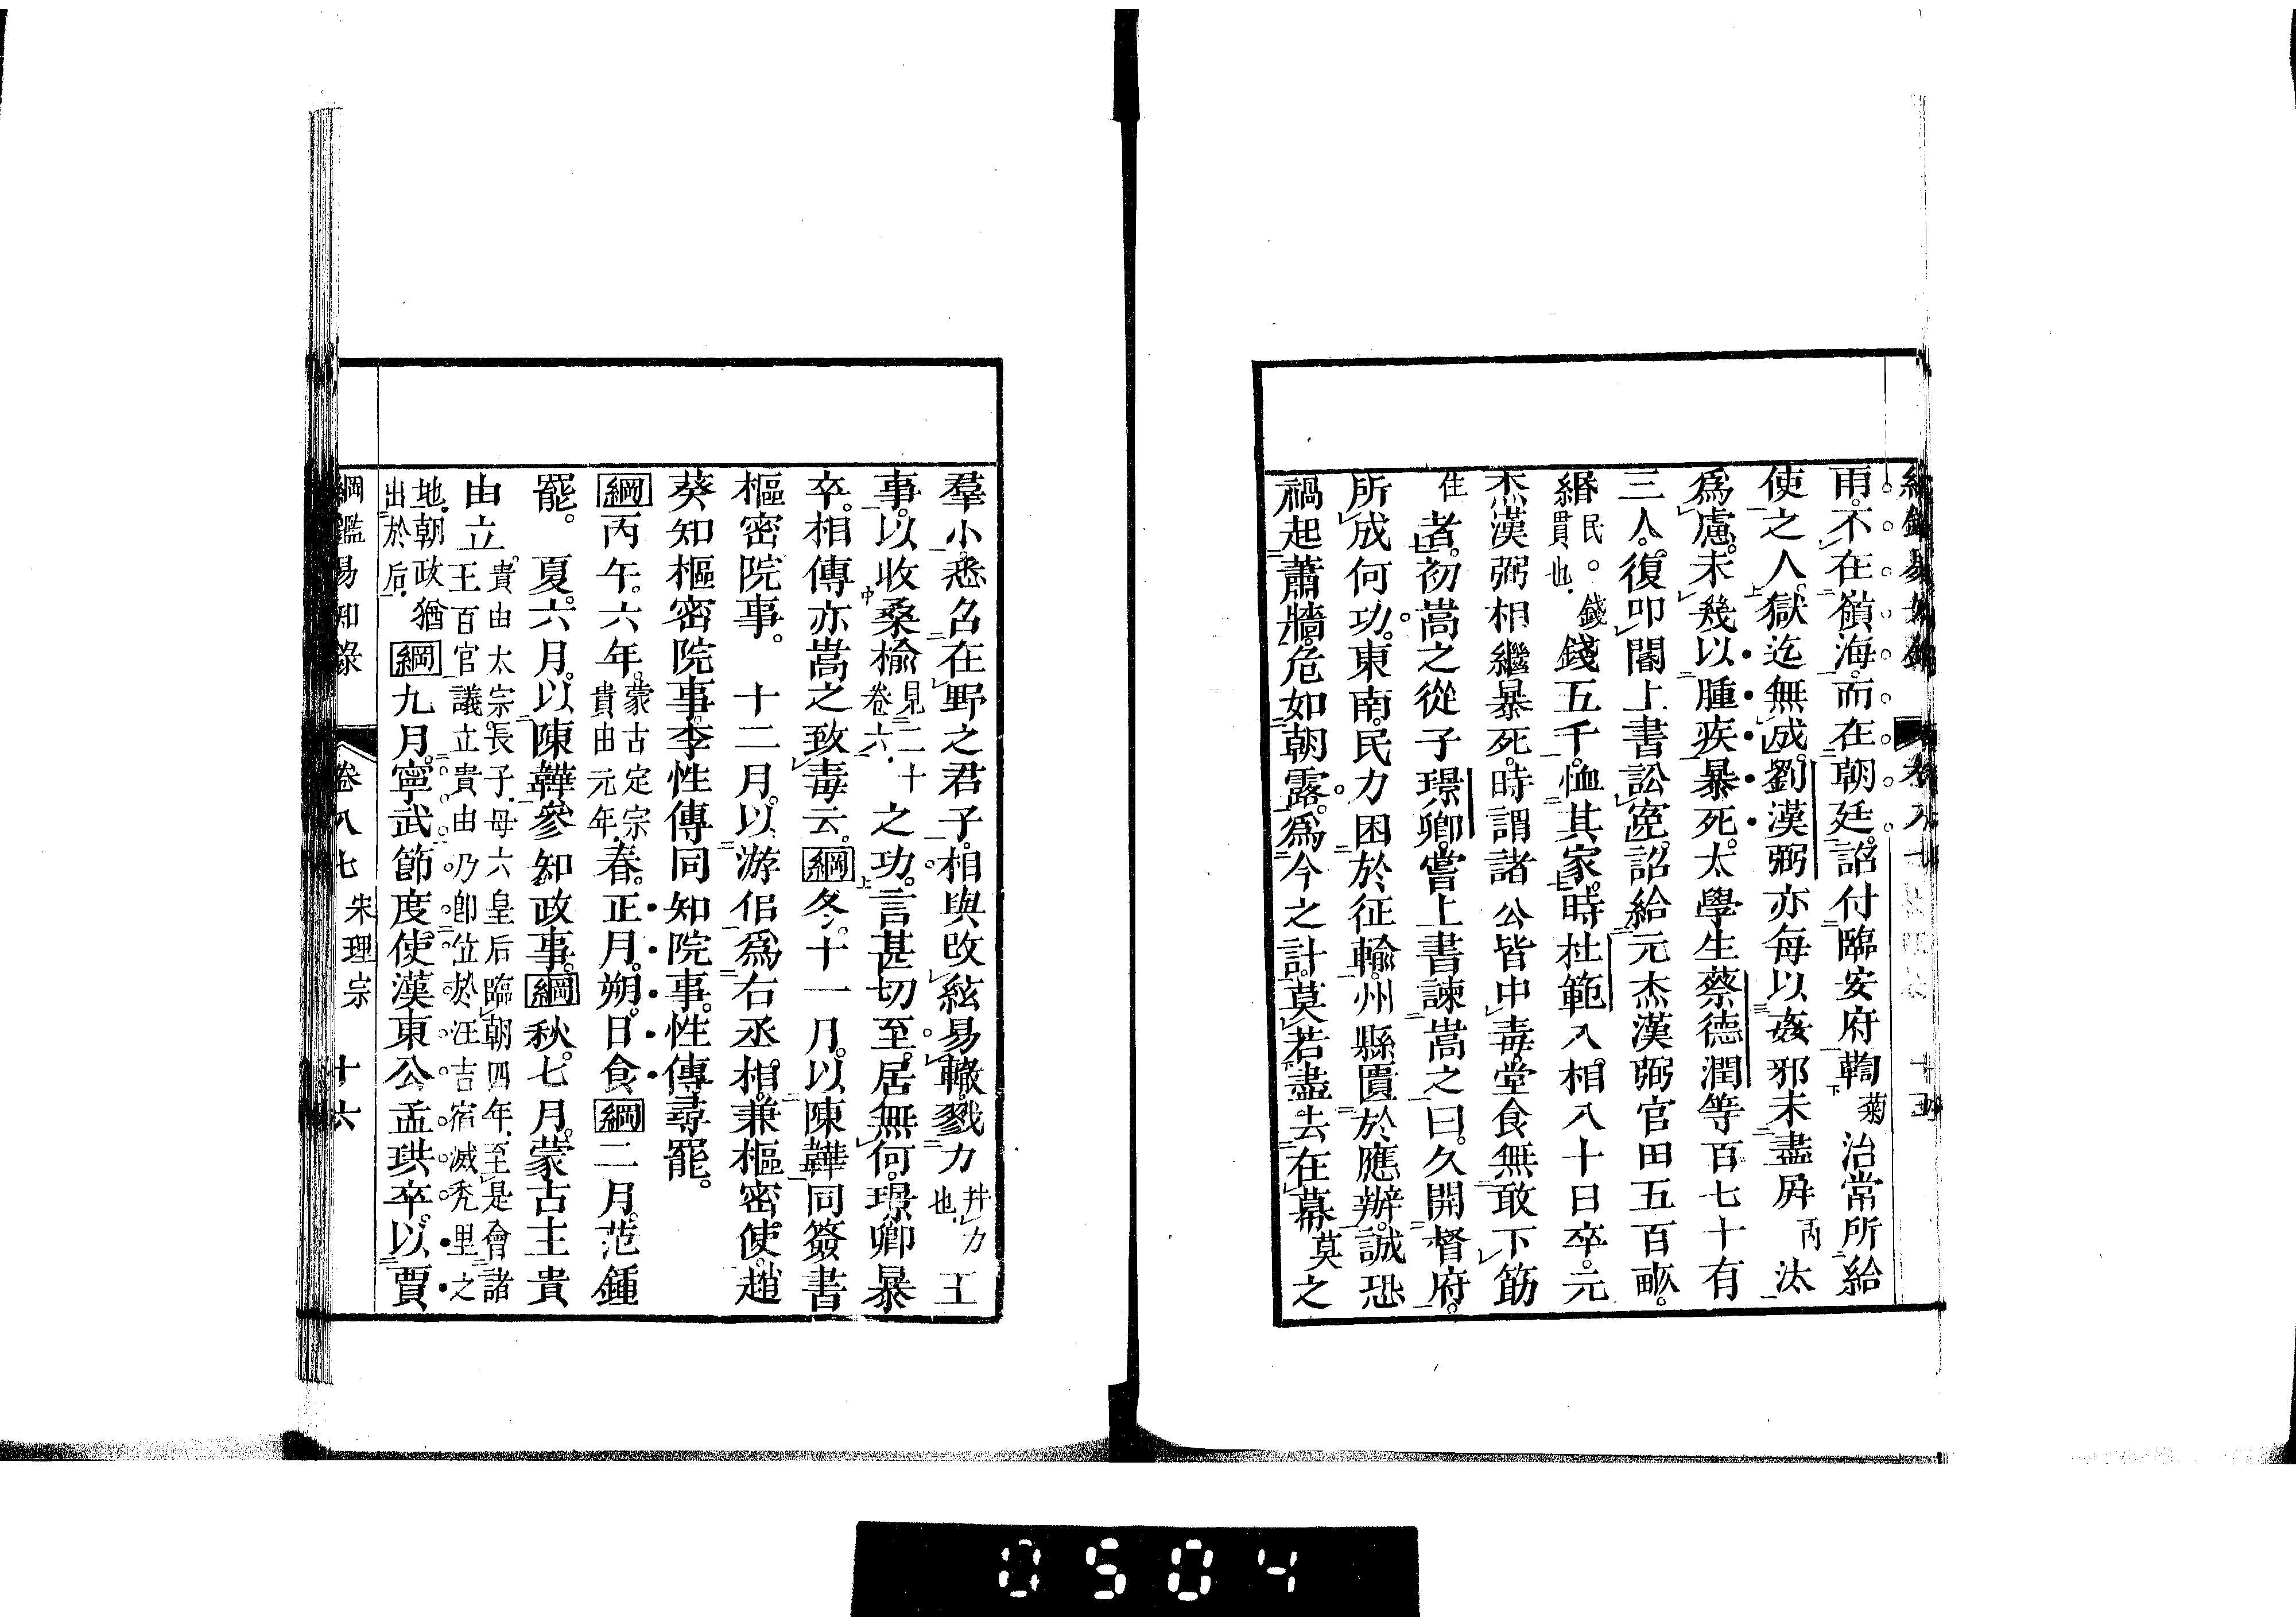 雨。不在嶺海。而在朝廷。詔付臨安府鞫菊治常所給
使之人。獄迄無成。劉漢弼亦每以姦邪未盡屛丙汰
爲慮。未幾以腫疾暴死。太學生蔡德潤等百七十有
三人。復叩閽上書訟寃。詔給元杰漢弼官田五百畝。
緡民。錢貫也。錢五千。恤其家。時杜範入相八十日卒。元
杰漢弼相繼暴死。時謂諸公皆中毒。堂食無敢下筯
住者。初嵩之從子璟卿。嘗上書諫嵩之曰。久開督府。
所成何功。東南民力困於征輸。州縣匱於應辦。誠恐
禍起蕭牆。危如朝露。爲今之計。莫若盡去在幕莫之
羣小。悉召在野之君子。相與改絃易轍。戮力幷力也。王
事。以收桑楡見二十卷六。之功。言甚切至。居無何。璟卿暴
卒。相傳亦嵩之致毒云。綱冬。十一月。以陳韡同簽書
樞密院事。 十二月。以游侣爲右丞相。兼樞密使。趙
葵知樞密院事。李性傳同知院事。性傳尋罷。
綱丙午。六年。蒙古定宗貴由元年。春。正月。朔。日食。綱二月。范鍾
罷。 夏。六月。以陳韡參知政事。綱秋。七月。蒙古主貴
由立。貴由太宗長子。母六皇后臨朝四年。至是會諸王百官議立貴由。乃卽位於汪吉宿滅禿里之
地。朝政猶出於后。綱九月。寧武節度使漢東公孟珙卒。以賈
綱鑑易知錄 卷八七 宋理宗 十六
0504